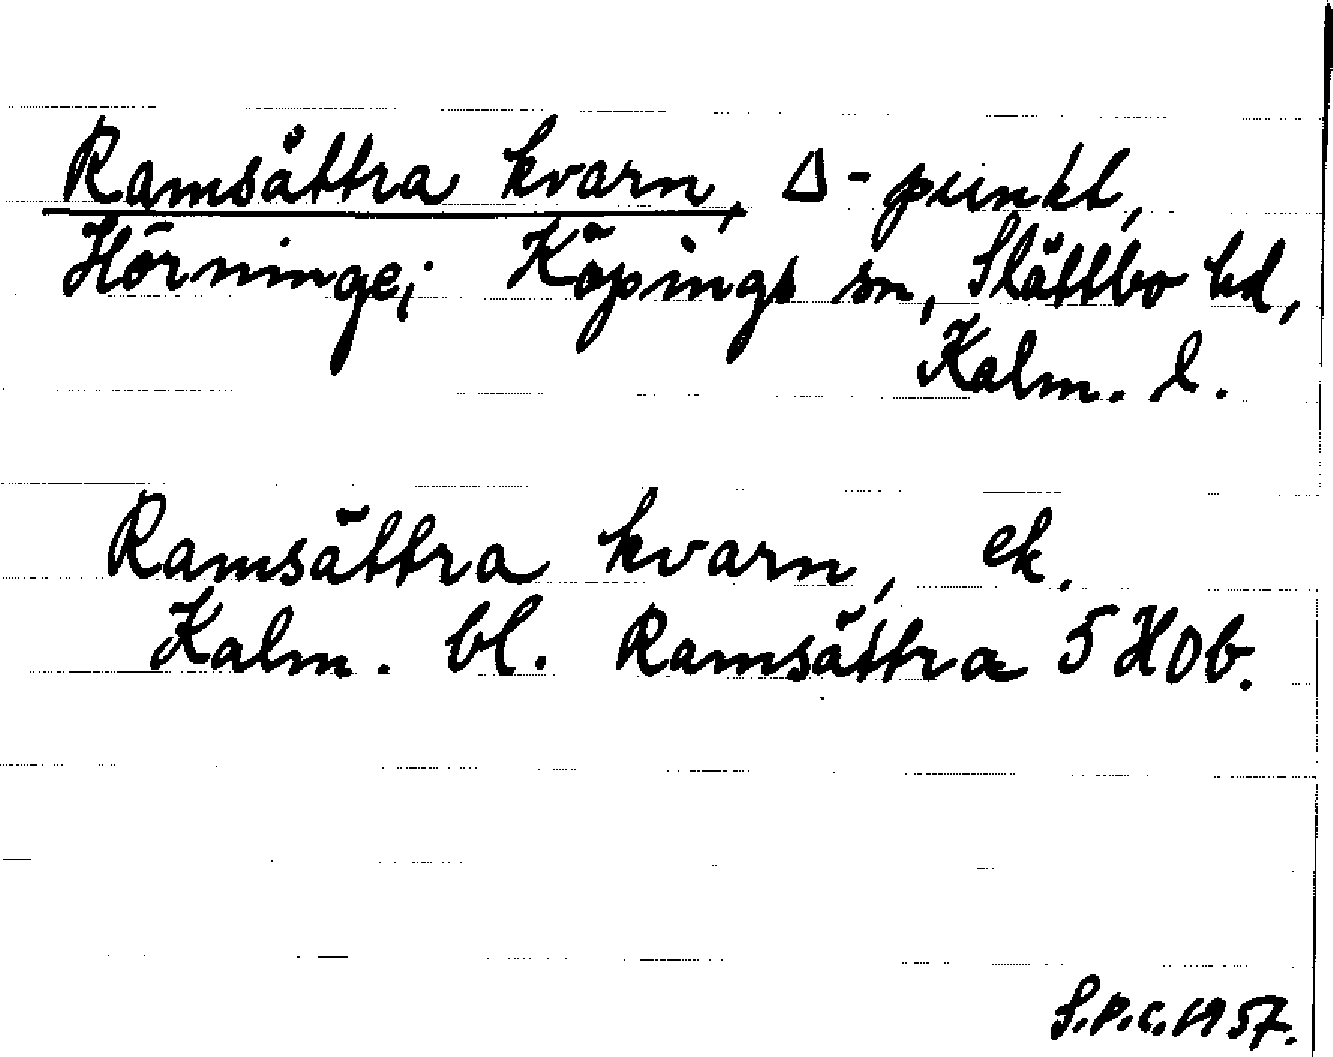 Ramsättra kvarn, Δ-punkt,
Hörninge; Köpings sn, Slättbo hd,
Kalm. l.
Ramsättra kvarn, ek.
Kalm. bl. Ramsättra 5 H 0b.
S.P.C. 1957.